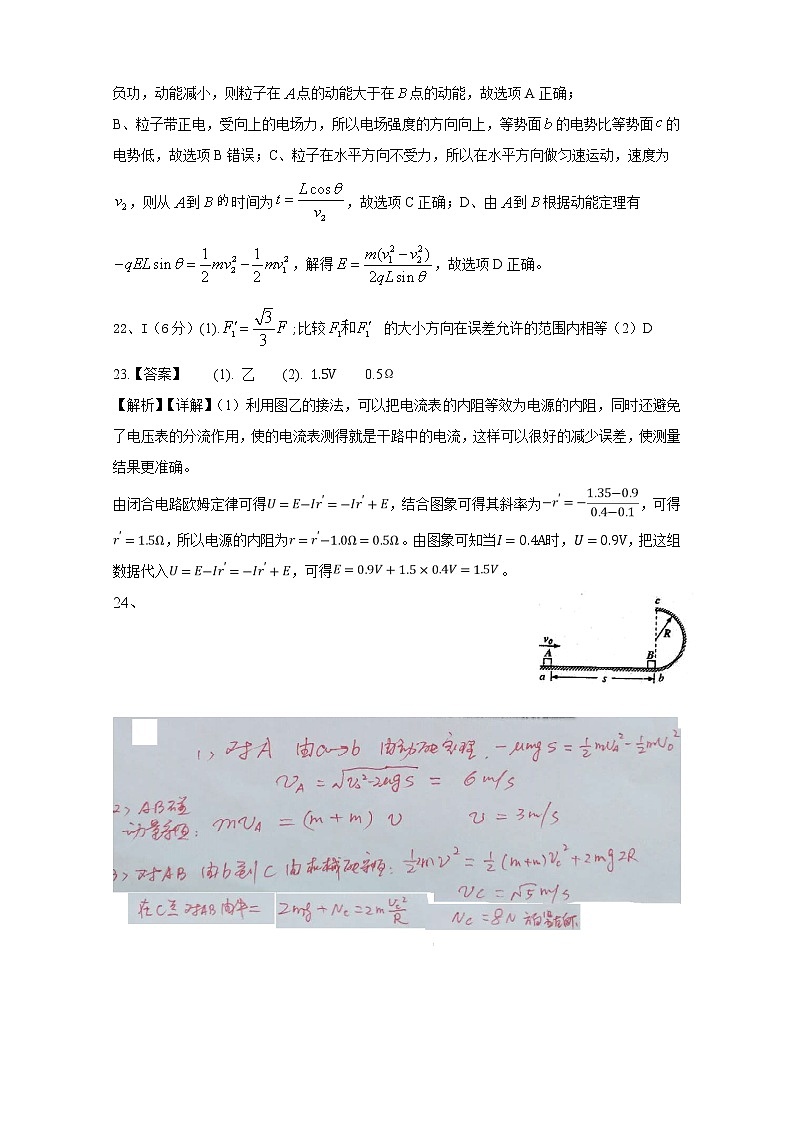 负功，动能减小，则粒子在 A点的动能大于在 B 点的动能，故选项 A 正确；
B、粒子带正电，受向上的电场力，所以电场强度的方向向上，等势面 b 的电势比等势面 c 的
电势低，故选项 B 错误；C、粒子在水平方向不受力，所以在水平方向做匀速运动，速度为
v₂，则从 A到 B 的时间为 t = Lcosθ/v₂，故选项 C 正确；D、由 A到 B 根据动能定理有
−qEL sinθ = 1/2 mv₂² − 1/2 mv₁²，解得 E = m(v₁² − v₂²)/2qL sinθ，故选项 D 正确。
22、I（6 分）(1). F₁′ = √3/3 F ;比较 F₁和F₁′ 的大小方向在误差允许的范围内相等（2）D
23.【答案】 (1). 乙 (2). 1.5V 0.5Ω
【解析】【详解】（1）利用图乙的接法，可以把电流表的内阻等效为电源的内阻，同时还避免
了电压表的分流作用，使的电流表测得就是干路中的电流，这样可以很好的减少误差，使测量
结果更准确。
由闭合电路欧姆定律可得U = E−Ir′ = −Ir′ + E，结合图象可得其斜率为−r′ = −1.35−0.9/0.4−0.1，可得
r′ = 1.5Ω，所以电源的内阻为r = r′−1.0Ω = 0.5Ω。由图象可知当I = 0.4A时，U = 0.9V，把这组
数据代入U = E−Ir′ = −Ir′ + E，可得E = 0.9V + 1.5 × 0.4V = 1.5V。
24、
c
R
v₀
A
B
a
s
b
1) 对A 由a→b 由动能定理. −μmgs = ½mv_A² − ½mv₀²
v_A = √(v₀²−2μgs) = 6m/s
2) AB碰
动量守恒: mv_A = (m+m) v v = 3m/s
3) 对AB 由b到C 由机械能守恒: ½2mv² = ½(m+m)v_c² + 2mg2R
v_C = √5 m/s
在C点 对AB 由牛二 2mg + N_c = 2m v_c²/R N_c = 8N